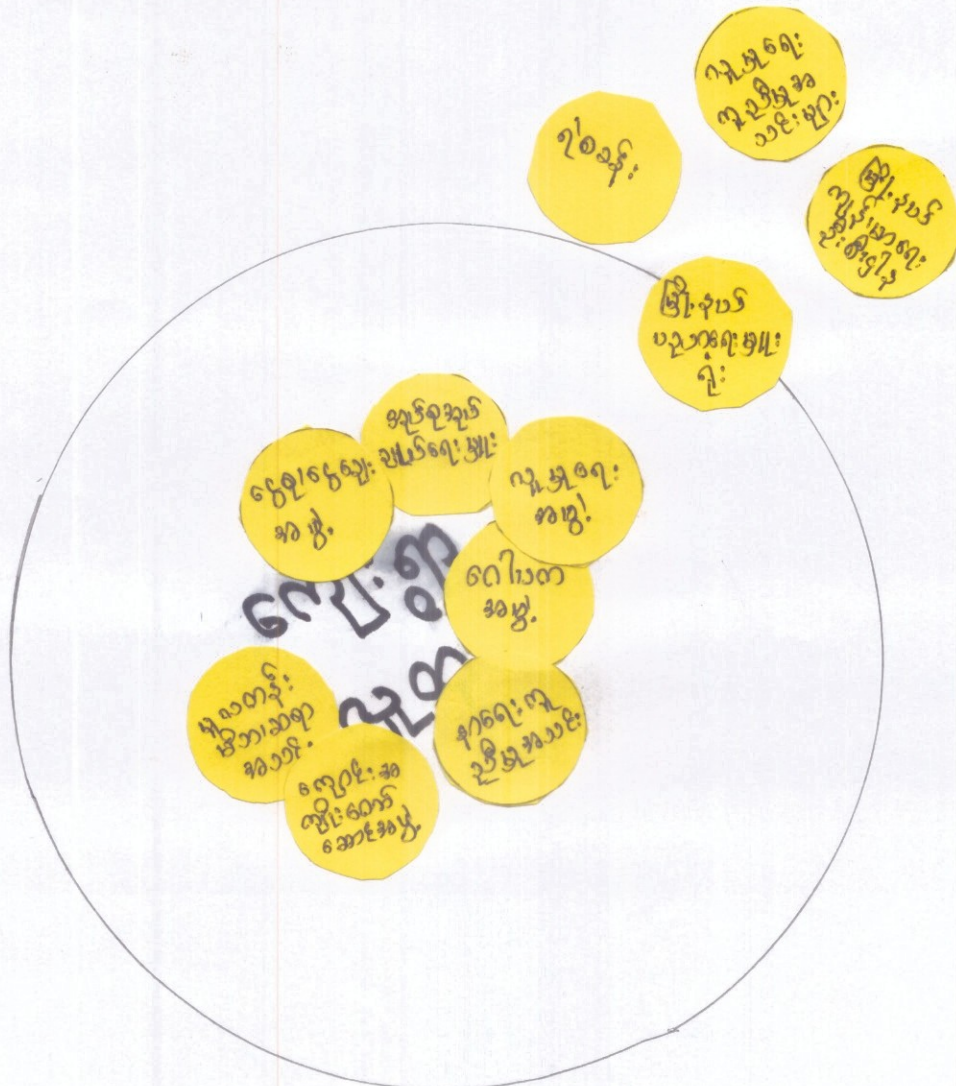 လူမှုရေး
ကူညီမှုအ
သင်းများ
ရဲစခန်း
မြို့နယ်
ကျန်းမာရေး
ဦးစီးဌာန
မြို့နယ်
ပညာရေးမှူး
ရုံး
အုပ်စုအုပ်
ချုပ်ရေးမှူး
ငွေစုငွေချေး
အဖွဲ့
လူမှုရေး
အဖွဲ့
ကျေးရွာ
ဂေါပက
အဖွဲ့
လူထု
မူလတန်း
မိဘဆရာ
အသင်း
နာရေးကူ
ညီမှုအသင်း
ကျောင်းအ
ကျိုးတော်
ဆောင်အဖွဲ့